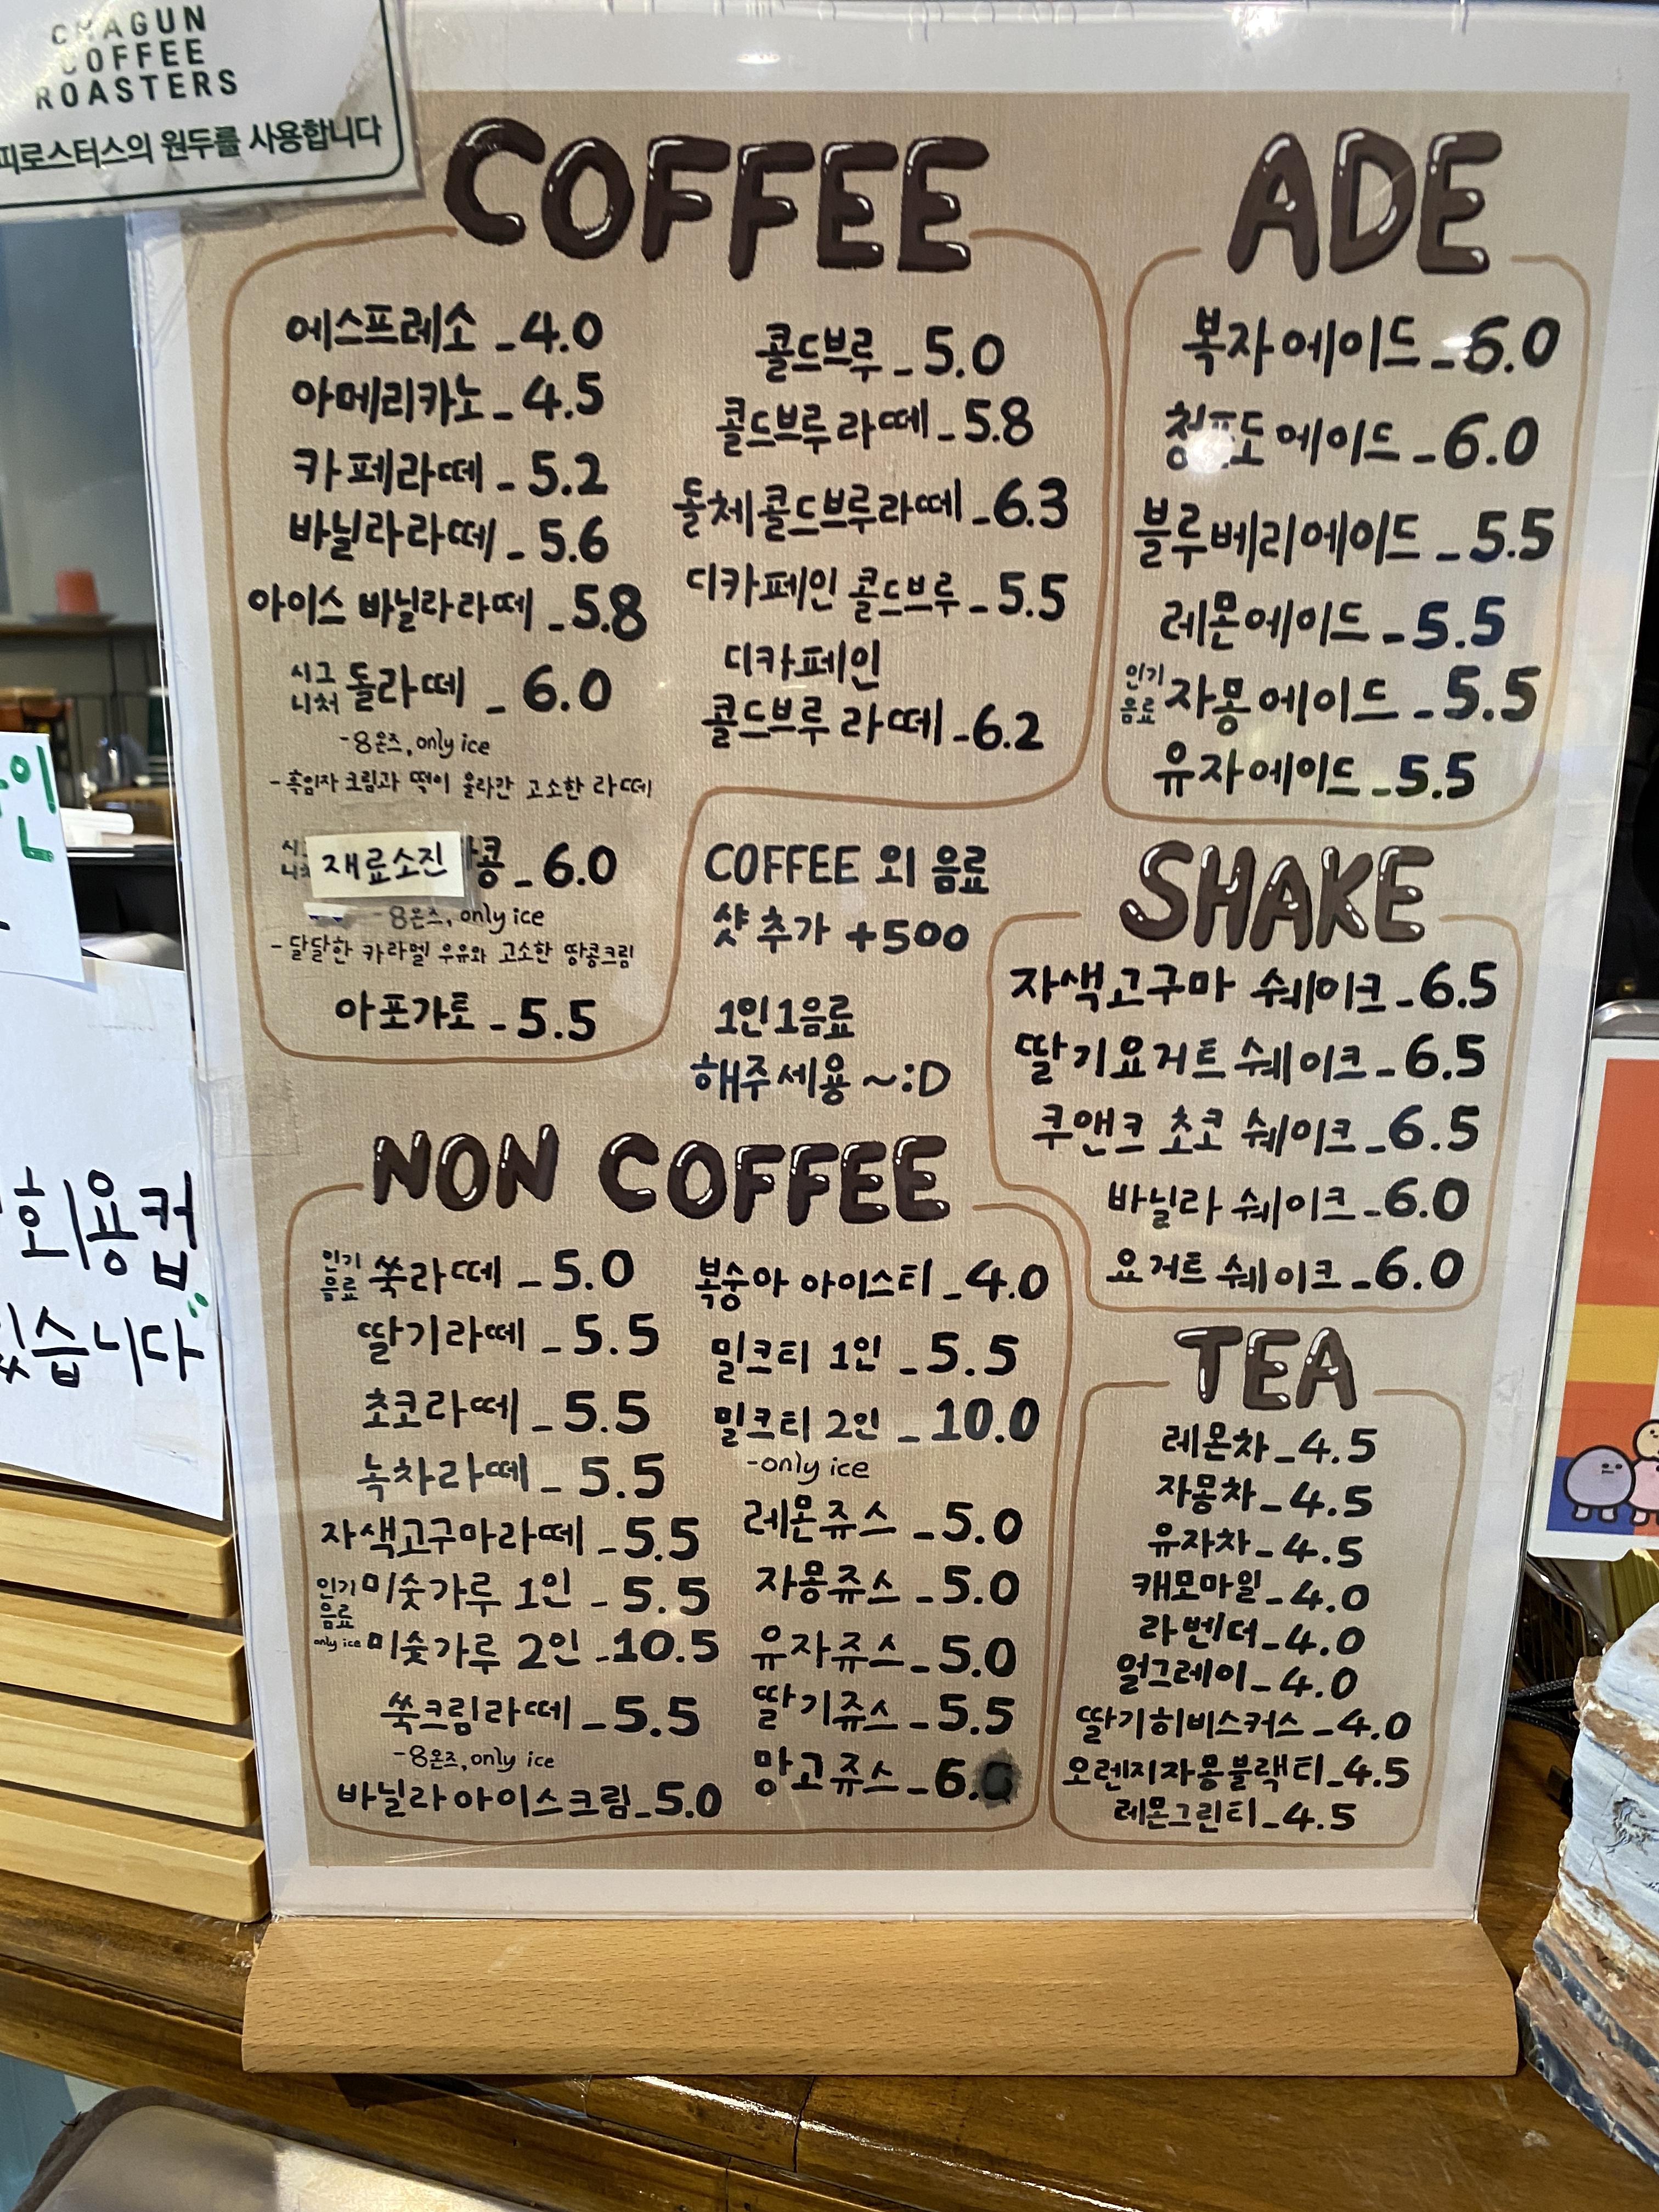 CHAGUN
COFFEE
ROASTERS
피로스터스의 원두를 사용합니다
COFFEE
에스프레소 _ 4.0
아메리카노 _ 4.5
카페라떼 _ 5.2
바닐라라떼 _ 5.6
아이스 바닐라라떼 _ 5.8
시그니처 돌라떼 _ 6.0
-8온즈, only ice
-흑임자 크림과 떡이 올라간 고소한 라떼
재료소진 콩 _ 6.0
-8온즈, only ice
-달달한 카라멜 우유와 고소한 땅콩크림
아포가토 _ 5.5
콜드브루 _ 5.0
콜드브루 라떼 _ 5.8
돌체콜드브루라떼 _ 6.3
디카페인 콜드브루 _ 5.5
디카페인
콜드브루 라떼 _ 6.2
COFFEE 외 음료
샷 추가 +500
1인1음료
해주세용 ~:D
ADE
복자에이드 _ 6.0
청포도에이드 _ 6.0
블루베리에이드 _ 5.5
레몬에이드 _ 5.5
인기음료 자몽에이드 _ 5.5
유자에이드 _ 5.5
SHAKE
자색고구마 쉐이크 _ 6.5
딸기요거트 쉐이크 _ 6.5
쿠앤크 초코 쉐이크 _ 6.5
바닐라 쉐이크 _ 6.0
요거트 쉐이크 _ 6.0
NON COFFEE
인기음료 쑥라떼 _ 5.0
딸기라떼 _ 5.5
초코라떼 _ 5.5
녹차라떼 _ 5.5
자색고구마라떼 _ 5.5
인기음료 미숫가루 1인 _ 5.5
only ice 미숫가루 2인 _ 10.5
쑥크림라떼 _ 5.5
-8온즈, only ice
바닐라아이스크림 _ 5.0
복숭아 아이스티 _ 4.0
밀크티 1인 _ 5.5
밀크티 2인 _ 10.0
-only ice
레몬쥬스 _ 5.0
자몽쥬스 _ 5.0
유자쥬스 _ 5.0
딸기쥬스 _ 5.5
망고쥬스 _ 6.0
TEA
레몬차 _ 4.5
자몽차 _ 4.5
유자차 _ 4.5
캐모마일 _ 4.0
라벤더 _ 4.0
얼그레이 _ 4.0
딸기히비스커스 _ 4.0
오렌지자몽블랙티 _ 4.5
레몬그린티 _ 4.5
인
회용컵
있습니다